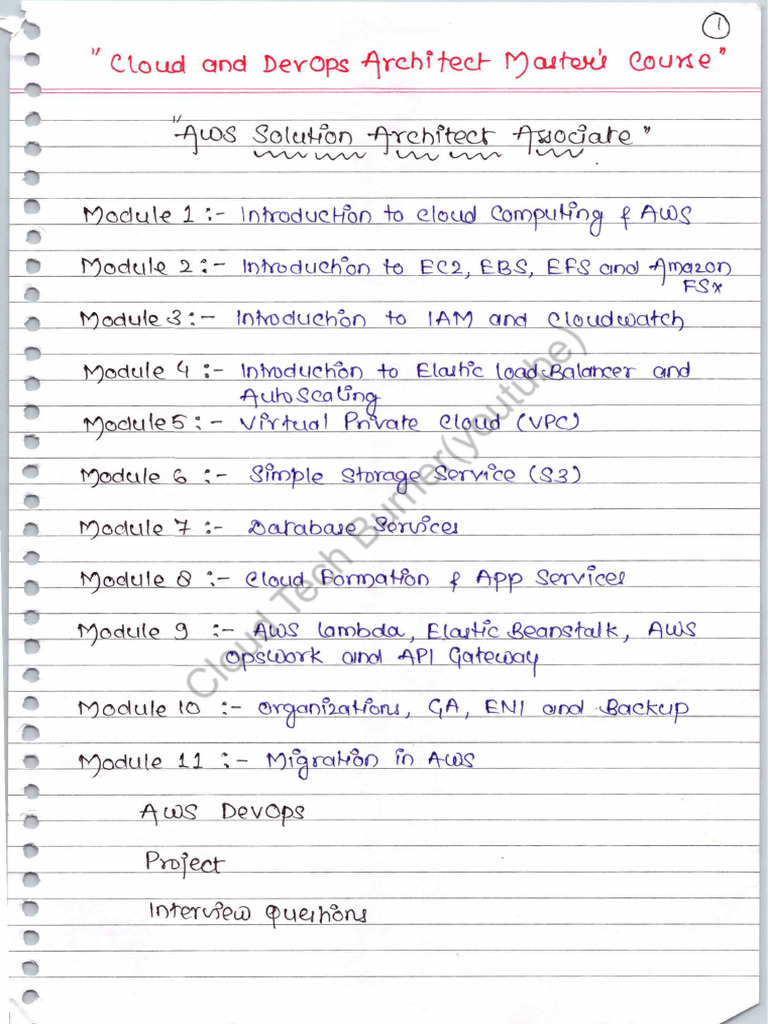 1
"Cloud and DevOps Architect Master's Course"
"AWS Solution Architect Associate"
Module 1 :- Introduction to cloud computing & AWS
Module 2 :- Introduction to EC2, EBS, EFS and Amazon
FSx
Module 3 :- Introduction to IAM and Cloudwatch
Module 4 :- Introduction to Elastic load Balancer and
AutoScaling
Module 5 :- Virtual Private Cloud (VPC)
Module 6 :- Simple Storage Service (S3)
Module 7 :- Database Services
Module 8 :- Cloud Formation & App Services
Module 9 :- AWS lambda, Elastic Beanstalk, AWS
OpsWork and API Gateway
Module 10 :- Organizations, GA, ENI and Backup
Module 11 :- Migration in AWS
AWS DevOps
Project
Interview Questions
Cloud Tech Burner(youtube)